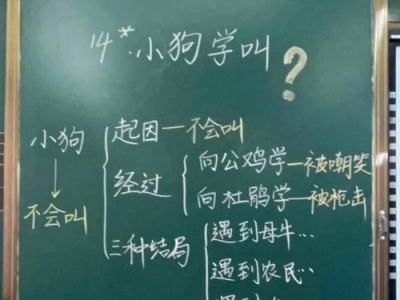 14*.小狗学叫?
小狗
不会叫
起因—不会叫
经过
向公鸡学—被嘲笑
向杜鹃学—被枪击
三种结局
遇到母牛…
遇到农民…